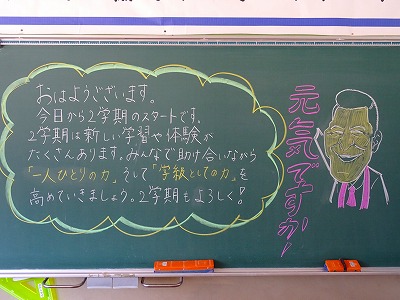 おはようございます。
今日から2学期のスタートです。
2学期は新しい学習や体験が
たくさんあります。みんなで助け合いながら
「一人ひとりの力」そして「学級としての力」を
高めていきましょう。2学期もよろしく!
元気ですかー